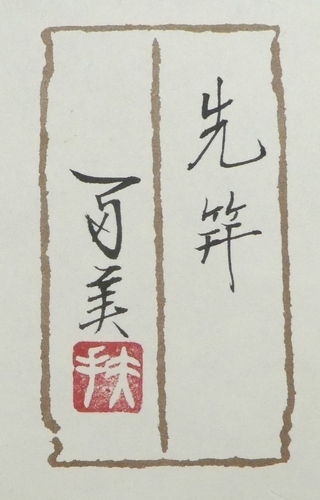 先笄
百美
扶